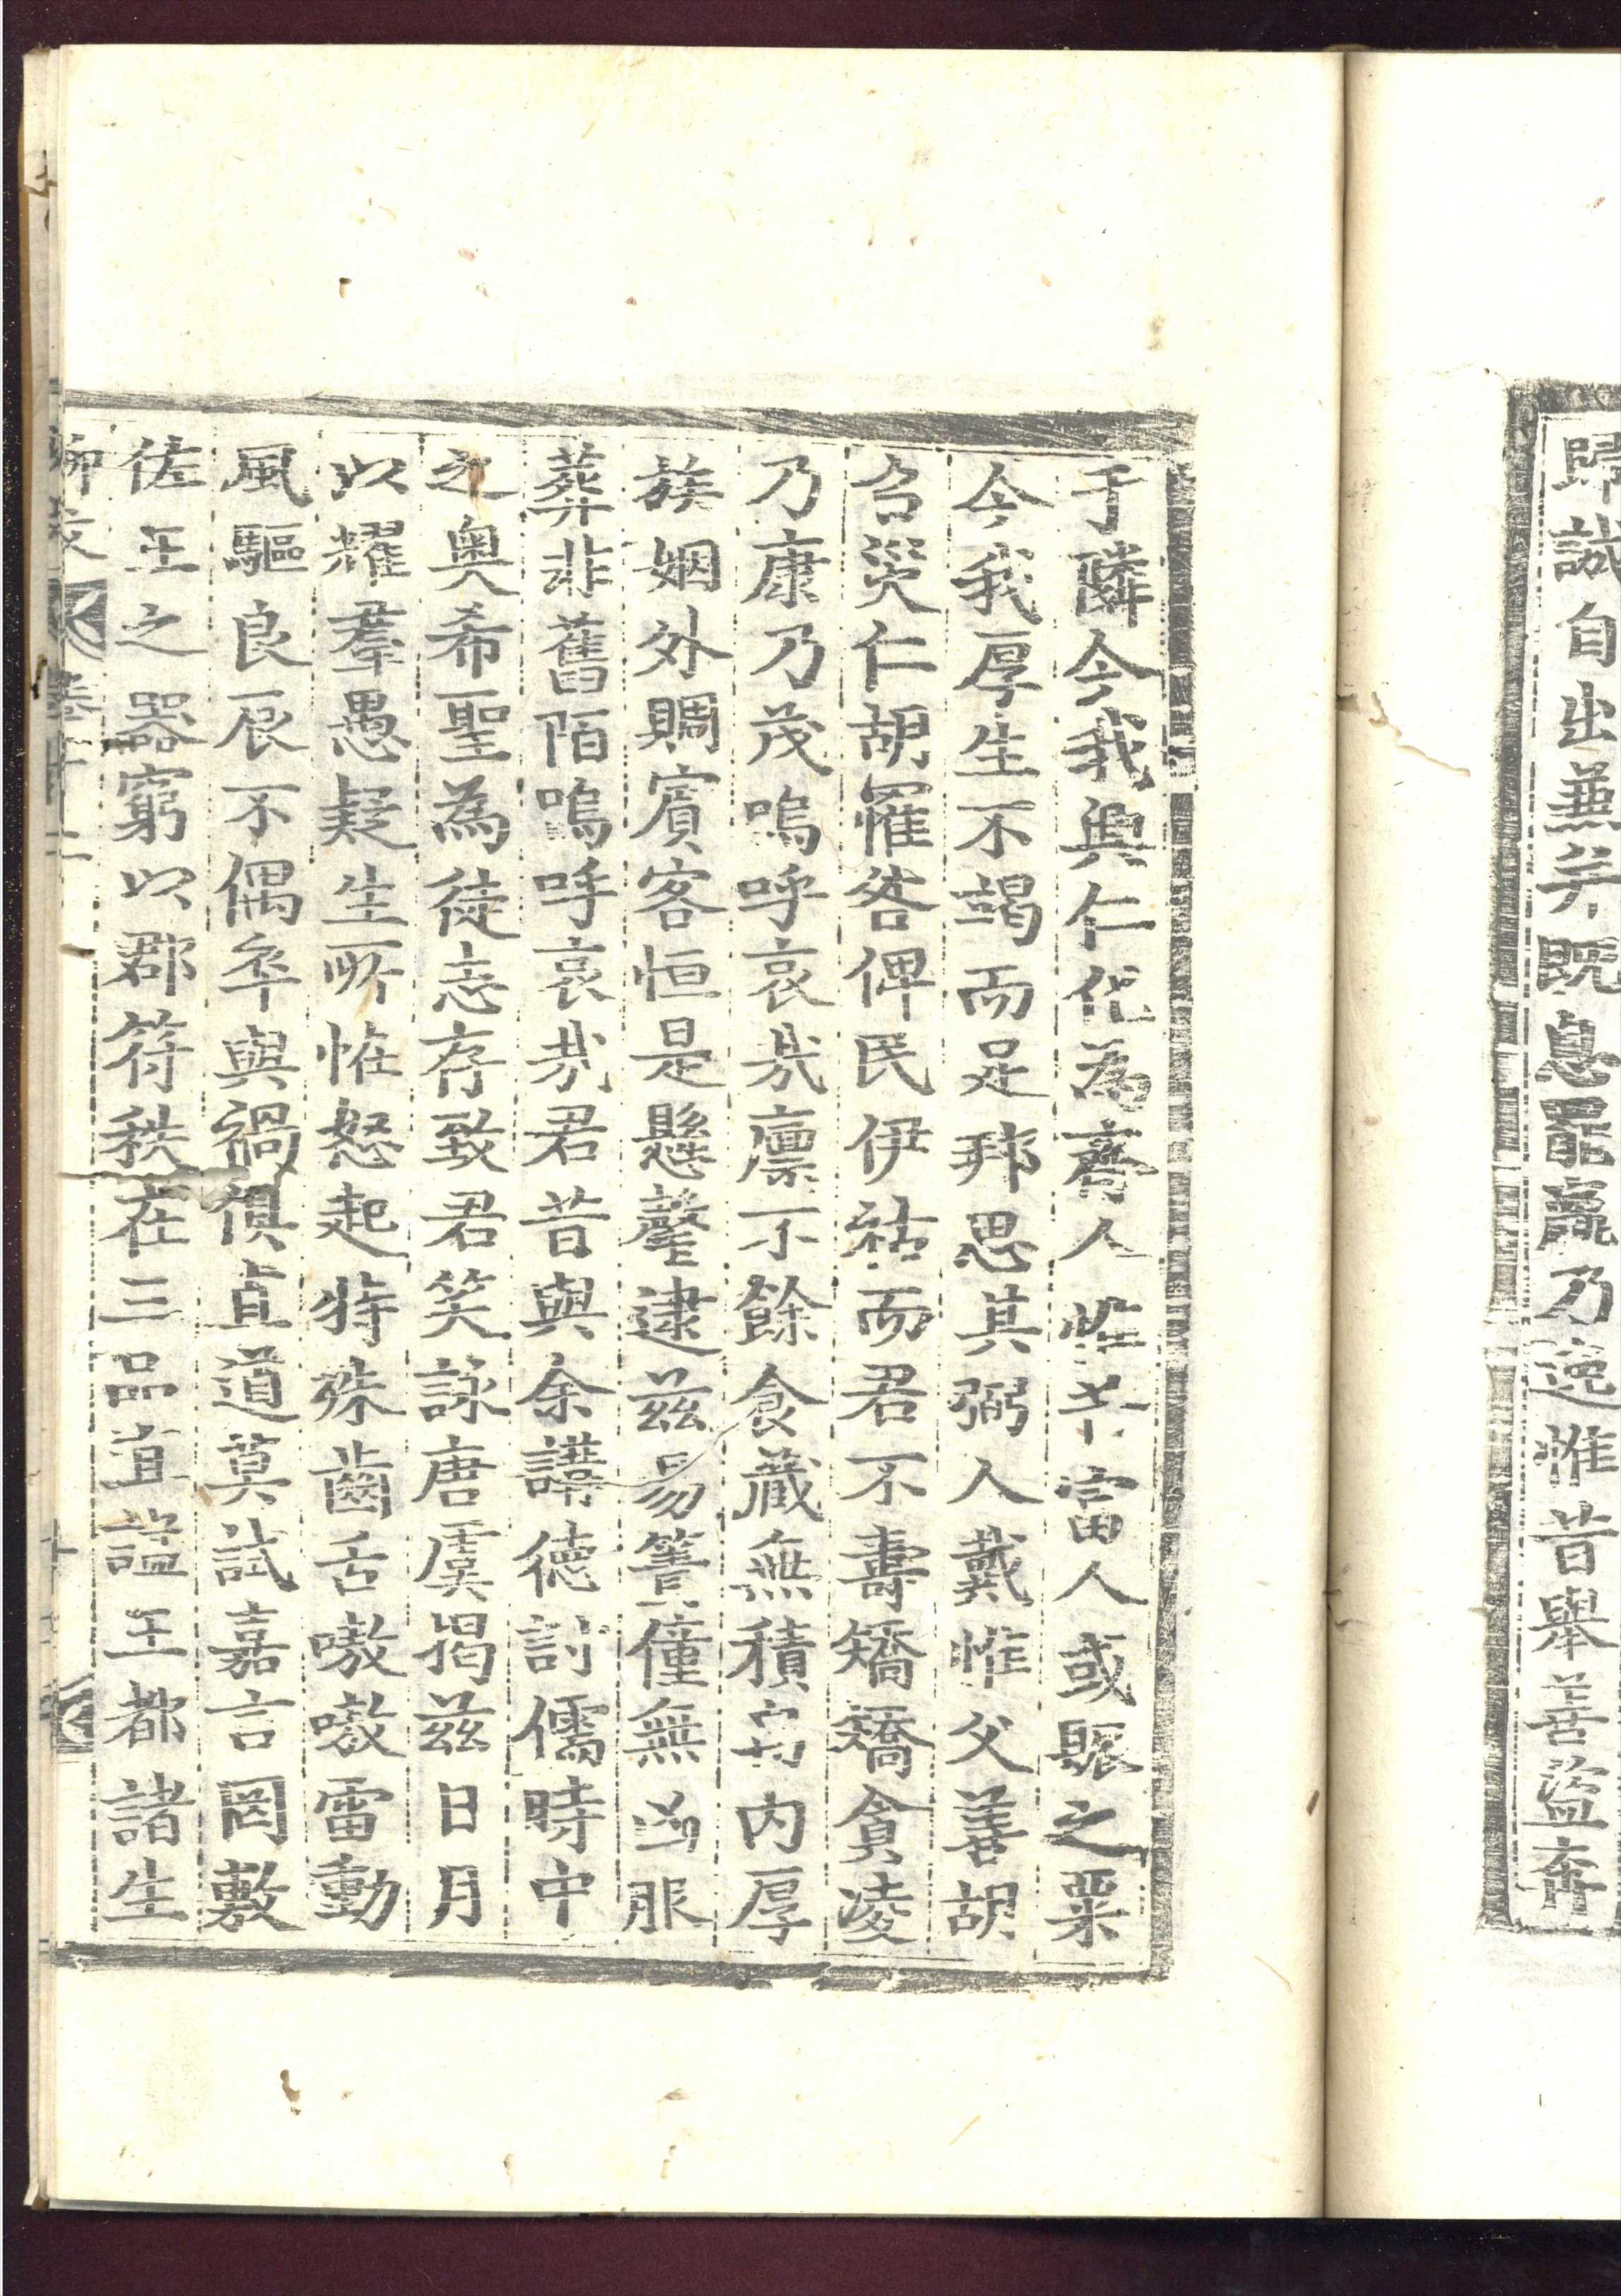 歸誠自出兼并既息罷羸乃逸惟昔舉善盜奔
于隣今我興仁化為齊人惟昔富人或賑之粟
今我厚生不竭而足邦思其弼人戴惟父善胡
召災仁胡罹咎俾民伊祜而君不壽矯矯貪凌
乃康乃茂嗚呼哀哉廩不餘食藏無積帛內厚
族姻外賙賓客恒是懸罄逮兹易簀僮無凶服
葬非舊陌嗚呼哀哉君昔與余講德討儒時中
之奧希聖為徒志存致君笑詠唐虞揭兹日月
以耀羣愚疑生所恠怒起特殊齒舌嗷嗷雷動
風驅良辰不偶卒與禍俱直道莫試嘉言罔敷
佐王之器窮以郡符秩在三品宜諡王都諸生